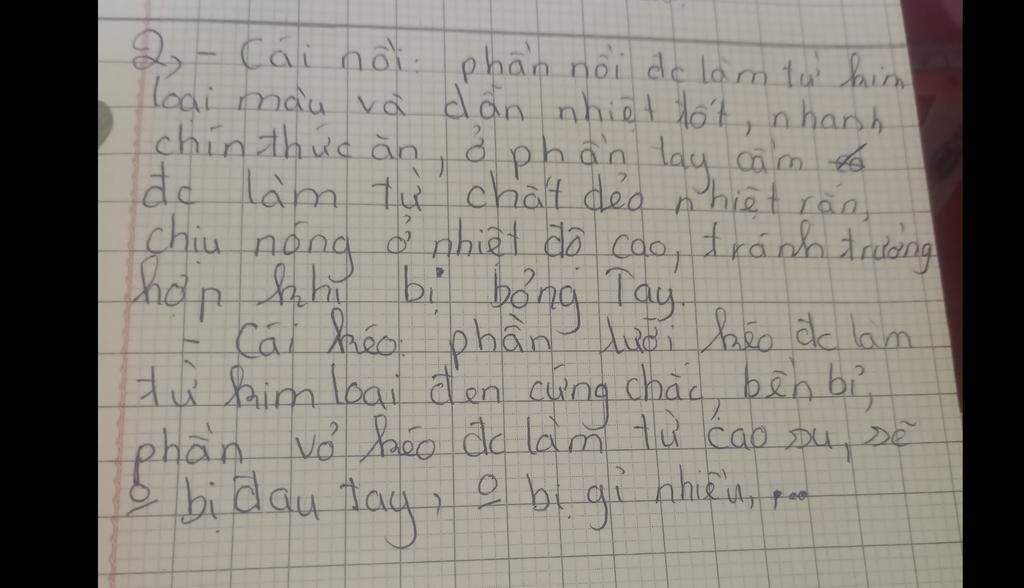 2, - Cái nồi: phần nồi đc làm từ kim
loại màu và dẫn nhiệt tốt, nhanh
chín thức ăn, ở phần tay cầm
đc làm từ chất dẻo nhiệt rắn,
chịu nóng ở nhiệt độ cao, tránh trường
hợp khi bị bỏng Tay.
- Cái kéo: phần lưỡi kéo đc làm
từ kim loại đen cứng chắc, bền bỉ,
phần vỏ kéo đc làm từ cao su, sẽ
o bị đau tay, o bị gỉ nhiều, ...